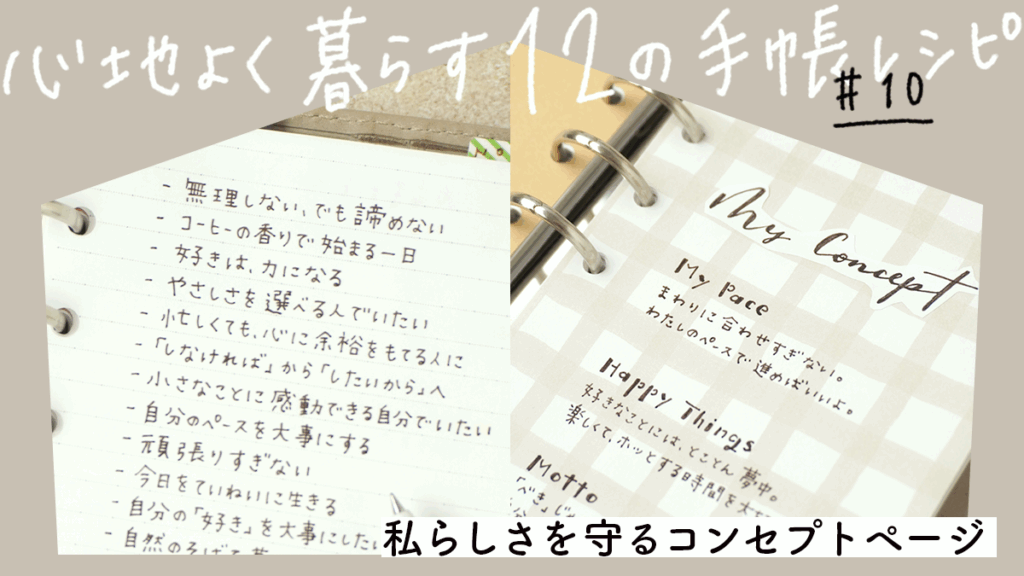 心地よく暮らす12の手帳レシピ
#10
- 無理しない、でも諦めない
- コーヒーの香りで始まる一日
- 好きは、力になる
- やさしさを選べる人でいたい
- 忙しくても、心に余裕をもてる人に
- 「しなければ」から「したいから」へ
- 小さなことに感動できる自分でいたい
- 自分のペースを大事にする
- 頑張りすぎない
- 今日をていねいに生きる
- 自分の「好き」を大事にしたい
- 自然のそばで
My Concept
My Pace
まわりに合わせすぎない。
わたしのペースで進めばいいよ。
Happy Things
好きなことには、とことん夢中。
楽しくて、ホッとする時間を大
Motto
「べき」じ
私らしさを守るコンセプトページ